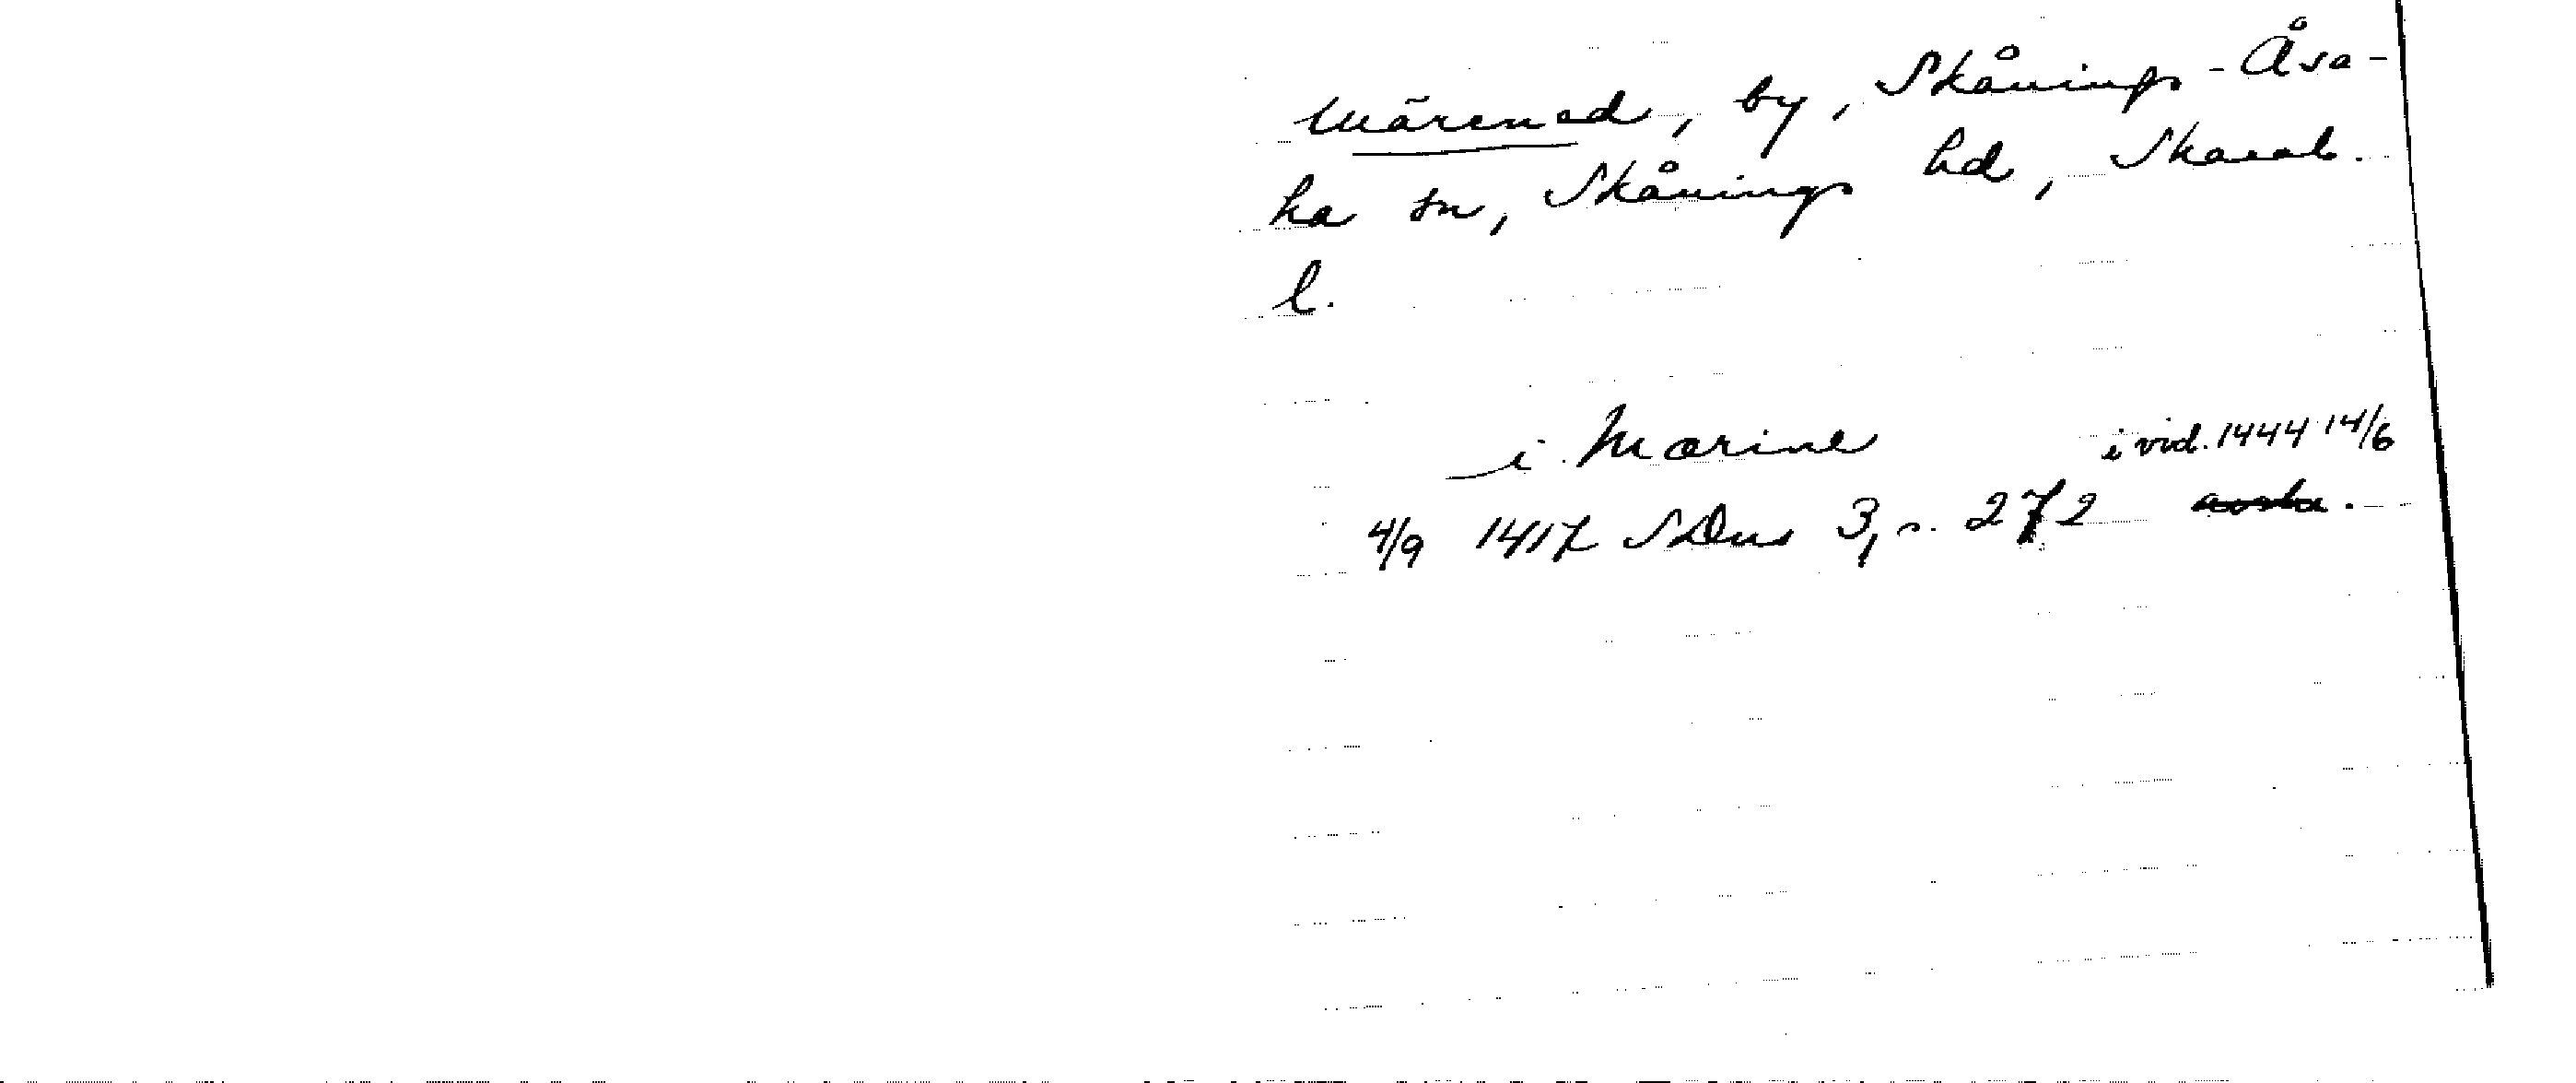 Märened, by, Skånings-Åsa-
ka sn, Skånings hd, Skarab.
l.
i Marine i vid. 1444 14/6
4/9 1417 SDns 3, s. 272